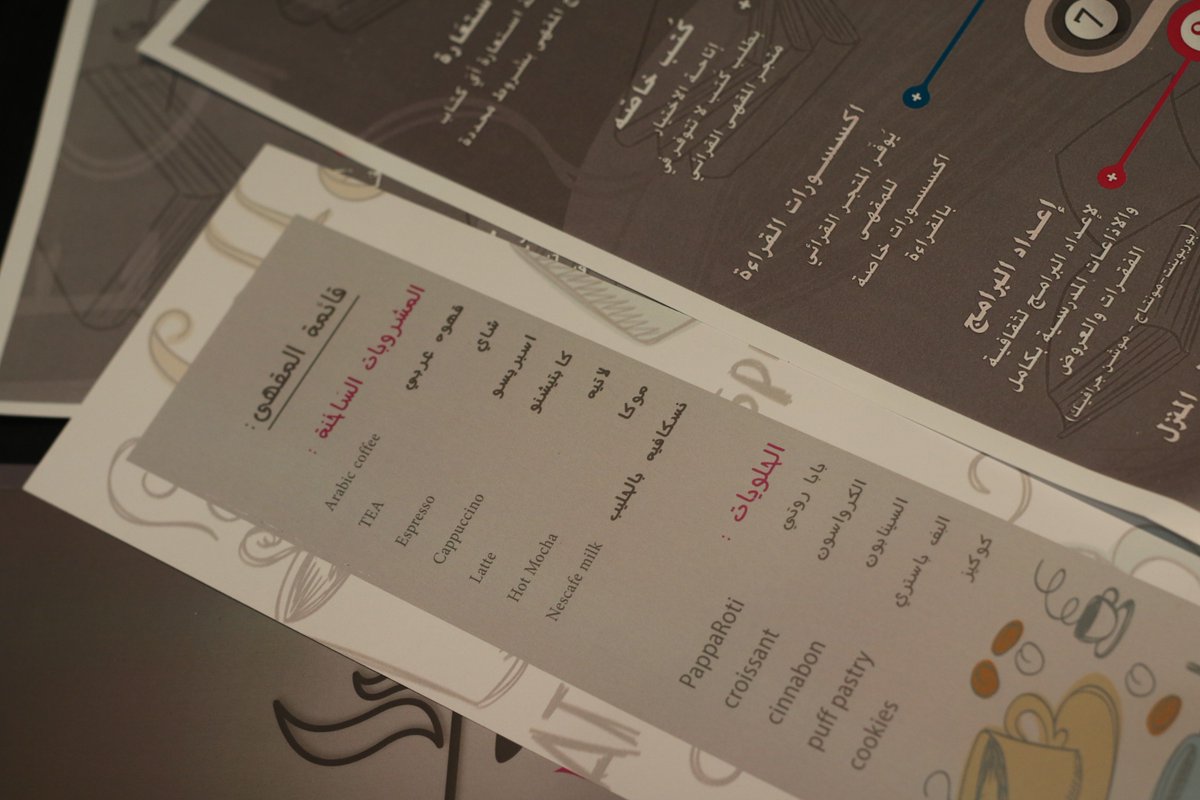 قائمة المقهى :
المشروبات الساخنة :
قهوه عربي
Arabic coffee
شاي
TEA
اسبريسو
Espresso
كابتيشنو
Cappuccino
لاتيه
Latte
موكا
Hot Mocha
نسكافيه بالحليب
Nescafe milk
الحلويات :
بابا روتي
PappaRoti
الكرواسون
croissant
السينابون
cinnabon
البف باستري
puff pastry
كوكيز
cookies
ستعارة
استعارة أي كتاب
المقهى بشروط محددة
كتب خاصه
إتاحة الاختيار
بطلب كتب لا تتوفر في
متجر المقهى القرائي
اكسسورات القراءة
يوفر المتجر القرائي
للمقهى
اكسسورات خاصة
بالقراءة
7
إعداد البرامج
لإعداد البرامج لثقافية
والاذاعات المدرسية بكامل
الفقرات والعروض
(بوربوينت - مونتاج - موشن جرافيك)
المنزل
AT